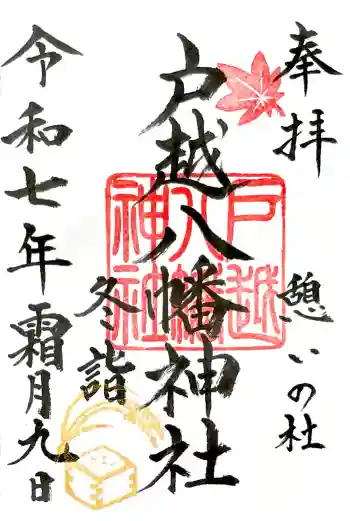 奉拝
憩いの杜
戸越八幡神社
戸越
八幡
神社
冬詣
令和七年霜月九日